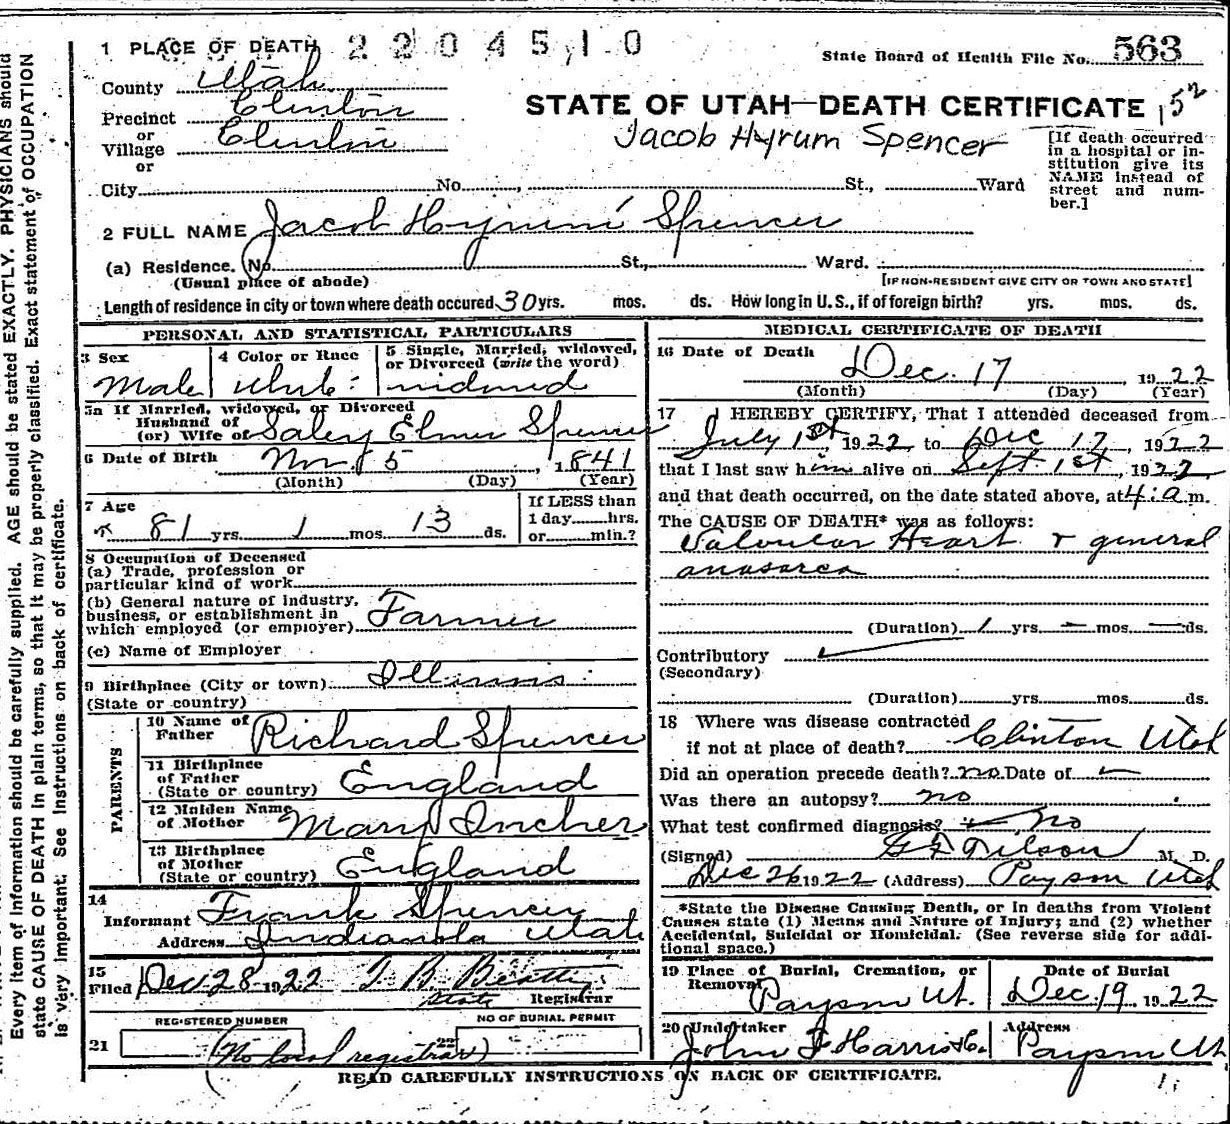 Every item of information should be carefully supplied. AGE should be stated EXACTLY. PHYSICIANS should
state CAUSE OF DEATH in plain terms, so that it may be properly classified. Exact statement of OCCUPATION
is very important. See instructions on back of certificate.
1 PLACE OF DEATH 2204510
State Board of Health File No. 563
County Utah
Precinct Clinton
or
Village Clinton
or
STATE OF UTAH—DEATH CERTIFICATE 152
Jacob Hyrum Spencer
[If death occurred
in a hospital or in-
stitution give its
NAME instead of
street and num-
ber.]
City No. St., Ward
2 FULL NAME Jacob Hyrum Spencer
(a) Residence. No. St., Ward.
(Usual place of abode) [IF NON-RESIDENT GIVE CITY OR TOWN AND STATE]
Length of residence in city or town where death occured 30 yrs. mos. ds. How long in U. S., if of foreign birth? yrs. mos. ds.
PERSONAL AND STATISTICAL PARTICULARS
3 Sex Male
4 Color or Race White
5 Single, Married, widowed,
or Divorced (write the word)
widowed
5a If Married, widowed, or Divorced
Husband of
(or) Wife of Saley Elmer Spencer
6 Date of Birth Nov 5, 1841
(Month) (Day) (Year)
7 Age
81 yrs. 1 mos. 13 ds.
If LESS than
1 day hrs.
or min.?
8 Occupation of Deceased
(a) Trade, profession or
particular kind of work
(b) General nature of industry,
business, or establishment in
which employed (or employer) Farmer
(c) Name of Employer
9 Birthplace (City or town) Illinois
(State or country)
PARENTS
10 Name of
Father Richard Spencer
11 Birthplace
of Father
(State or country) England
12 Maiden Name
of Mother Mary Incher
13 Birthplace
of Mother
(State or country) England
14
Informant Frank Spencer
Address Indianola Utah
15
Filed Dec 28 1922 T B Beatty
State Registrar
REGISTERED NUMBER NO OF BURIAL PERMIT
21 22
(No local registrar)
MEDICAL CERTIFICATE OF DEATH
16 Date of Death Dec. 17 1922
(Month) (Day) (Year)
17 I HEREBY CERTIFY, That I attended deceased from
July 1st, 1922 to Dec 17, 1922
that I last saw him alive on Sept. 1st, 1922
and that death occurred, on the date stated above, at 4:a m.
The CAUSE OF DEATH* was as follows:
Valvular Heart & general
anasarca
(Duration) 1 yrs. — mos. — ds.
Contributory
(Secondary)
(Duration) yrs. mos. ds.
18 Where was disease contracted
if not at place of death? Clinton Utah
Did an operation precede death? no Date of —
Was there an autopsy? no
What test confirmed diagnosis? no
(Signed) M. D.
Dec 26 1922 (Address) Payson Utah
*State the Disease Causing Death, or in deaths from Violent
Causes state (1) Means and Nature of Injury; and (2) whether
Accidental, Suicidal or Homicidal. (See reverse side for addi-
tional space.)
19 Place of Burial, Cremation, or
Removal Payson Ut.
Date of Burial
Dec. 19 1922
20 Undertaker
John F Harris
Address
Payson Ut
READ CAREFULLY INSTRUCTIONS ON BACK OF CERTIFICATE.